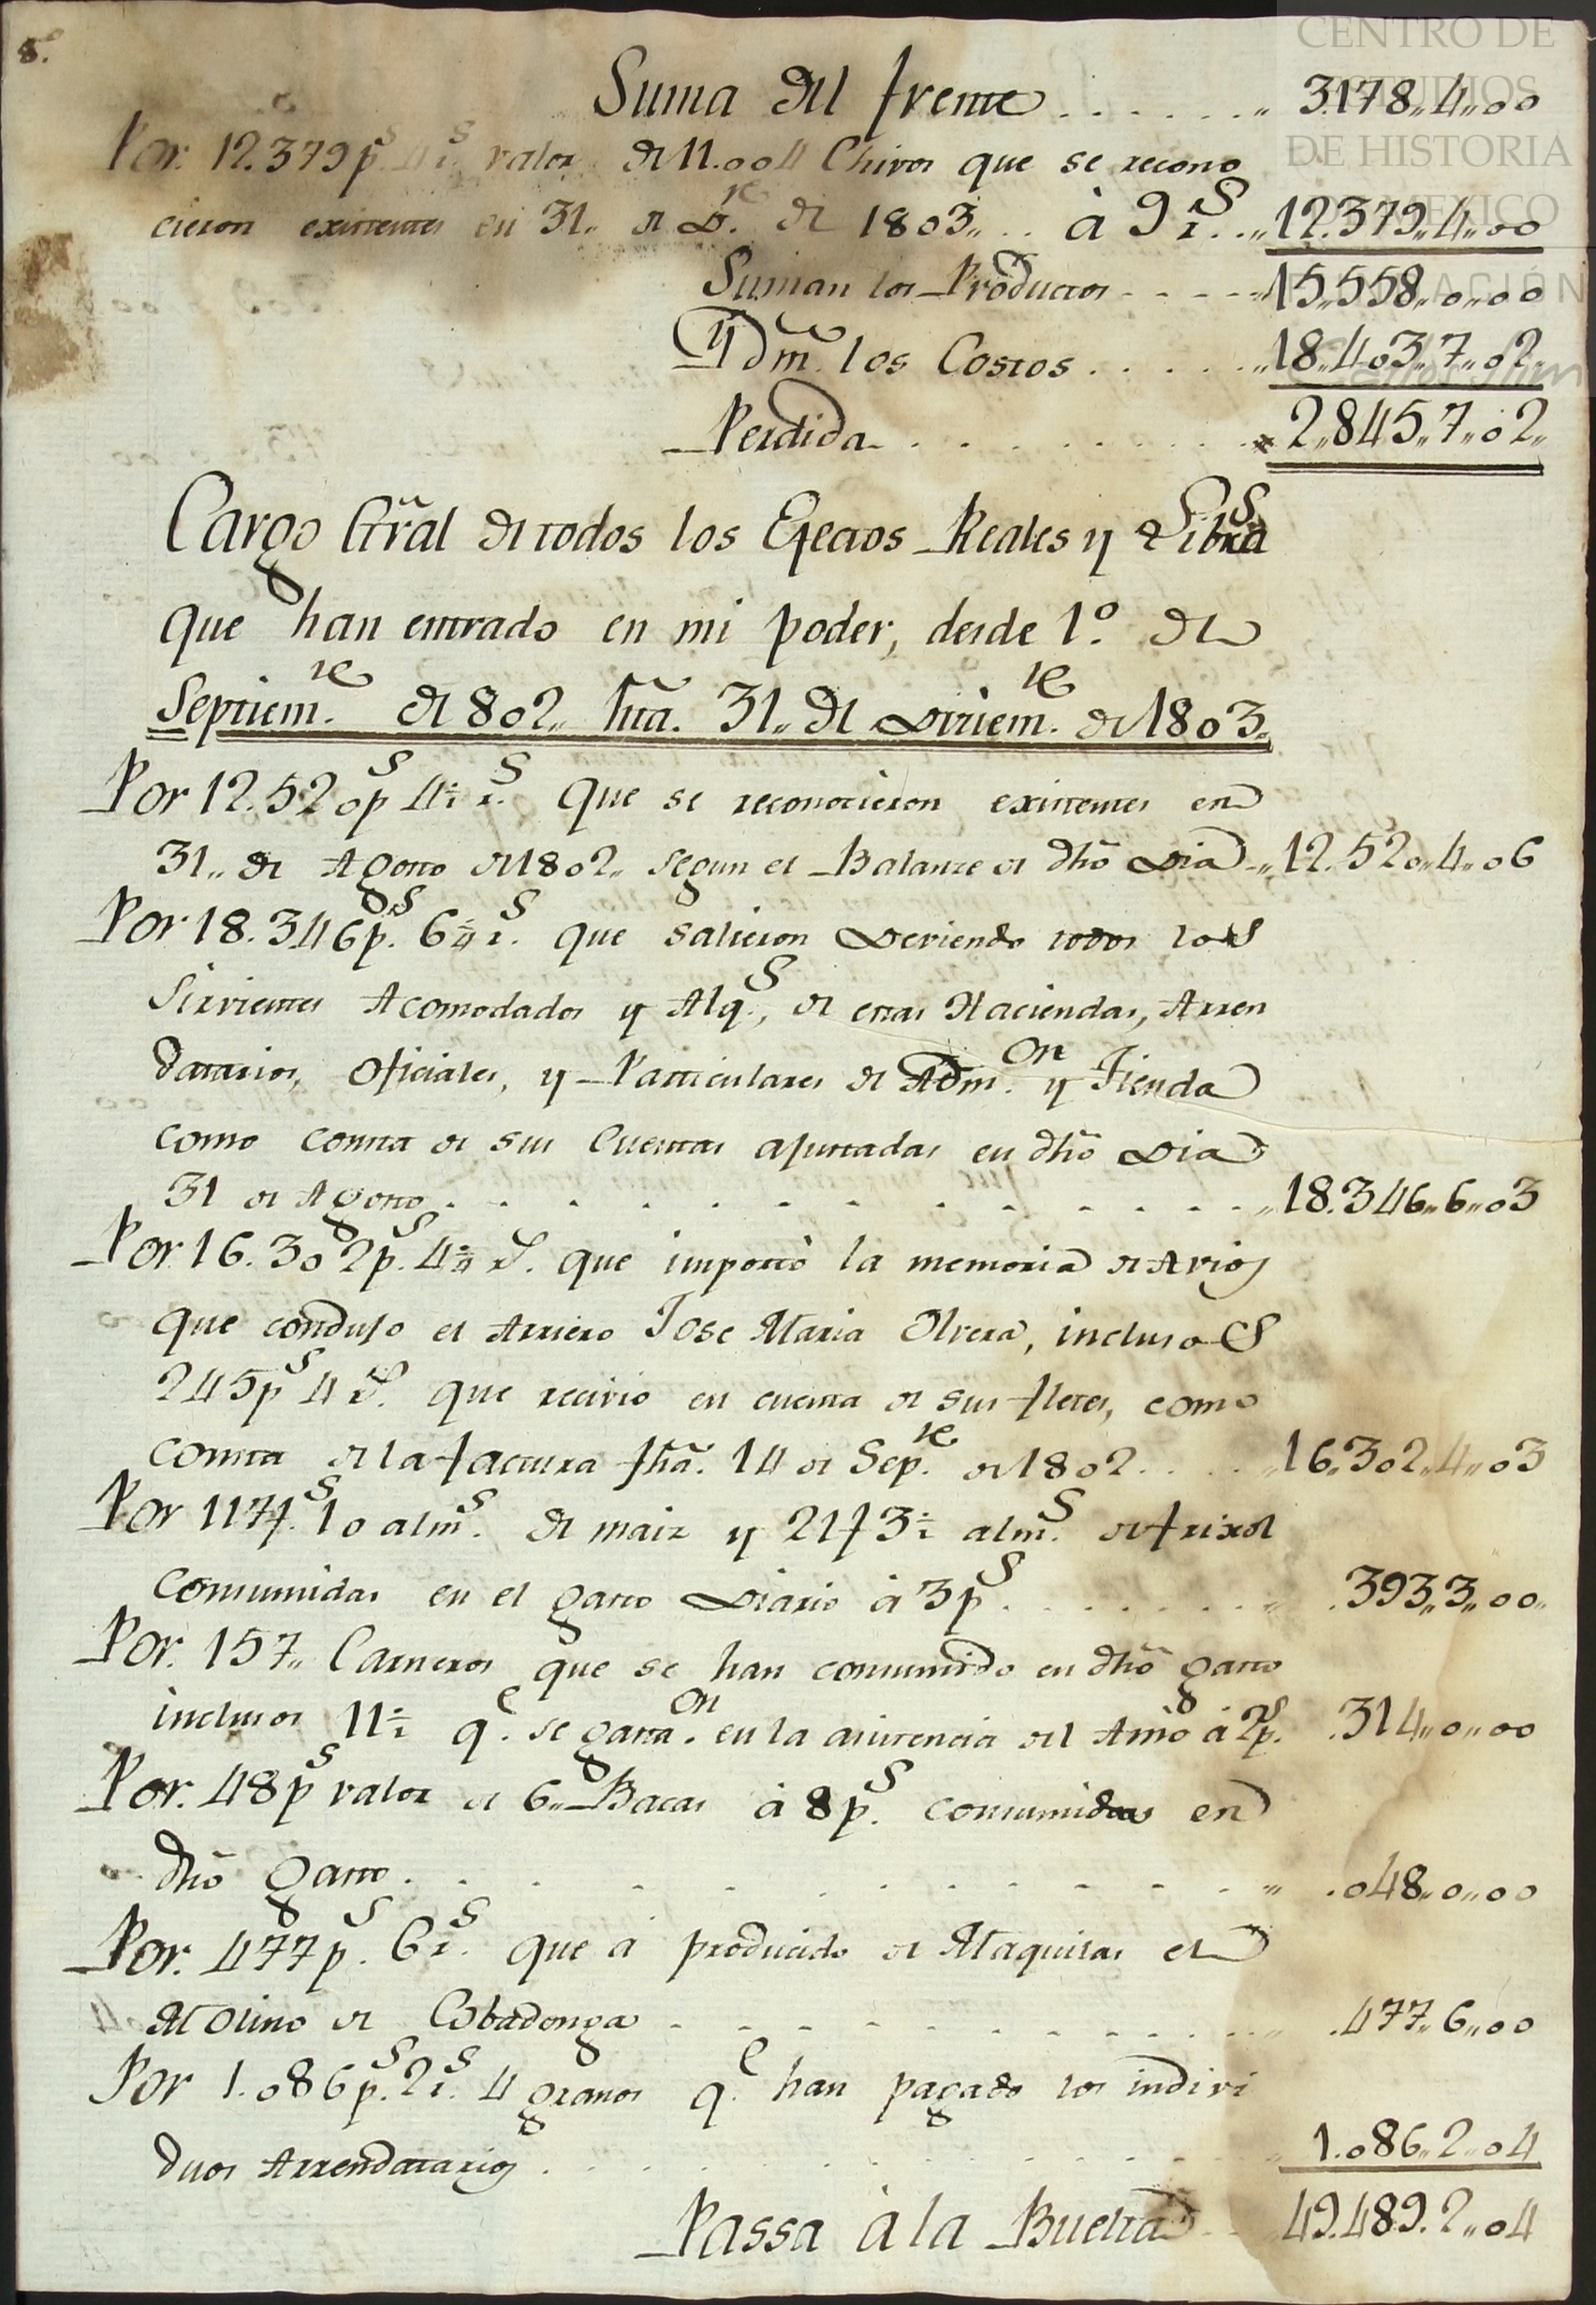 8.
CENTRO DE
ESTUDIOS
DE HISTORIA
DE MEXICO
FUNDACIÓN
Carlos Slim
Suma del frente . . . . . . „ 3.178„4„00
Por 12.379 p.s 4 r.s valor de 11.004 Chivos que se recono
cieron existentes en 31„ de D.re de 1803„ . . à 9 r.s . . „ 12.379„4„00
Suman los Productos - - - - „ 15„558„0„00
Ydm̃. los Costos . . . . . „ 18„403„7„02„
Perdida . . . . . . . . . 2„845„7„02„
Cargo Gr̃al de todos los Efectos Reales y Libr.s
que han entrado en mi poder, desde 1.º de
Septiem.re de 802„ hta. 31„ de Diziem.re de 1803„
Por 12.520 p.s 4½ r.s que se reconocieron existentes en
31„ de Agosto de 1802„ segun el Balanze de dho Dia „ 12.520„4„06
Por 18.346 p.s 6¼ r.s que salieron Deviendo todos los
Sirvientes Acomodados y Alq.s, de estas Haciendas, Arren
datarios, Oficiales, y Particulares de Adm.on y Tienda
como consta de sus Cuentas ajustadas en dho Dia
31 de Agosto . . . . . . . . . . . „ 18.346„6„03
Por 16.302 p.s 4¼ r.s que importó la memoria de Avios
que condujo el Arriero Jose Maria Olvera, inclusos
245 p.s 4 r.s que recivio en cuenta de sus fletes, como
consta de la factura fha. 14 de Sep.re de 1802 . . . . „ 16„302„4„03
Por 117 f.s 10 alm.s de maiz y 21 f 3½ alm.s de frixol
consumidas en el gasto Diario à 3 p.s . . . . . . . „ .393„3„00„
Por. 157„ Carneros que se han consumido en dho gasto
inclusos 11½ q.e se gasta.on en la asistencia del Amo à 2 p.s .314„0„00
Por. 48 p.s valor de 6„ Bacas à 8 p.s consumidas en
dho gasto . . . . . . . . . . . „ .048„0„00
Por. 477 p.s 6 r.s que à producido de Maquilas el
Molino de Cobadonga - - - - - - - - „ .477„6„00
Por 1.086 p.s 2 r.s 4 granos q.e han pagado los indivi
duos Arrendatarios . . . . . . . . . „ 1.086„2„04
Passa à la Buelta - - 49.489.2„04